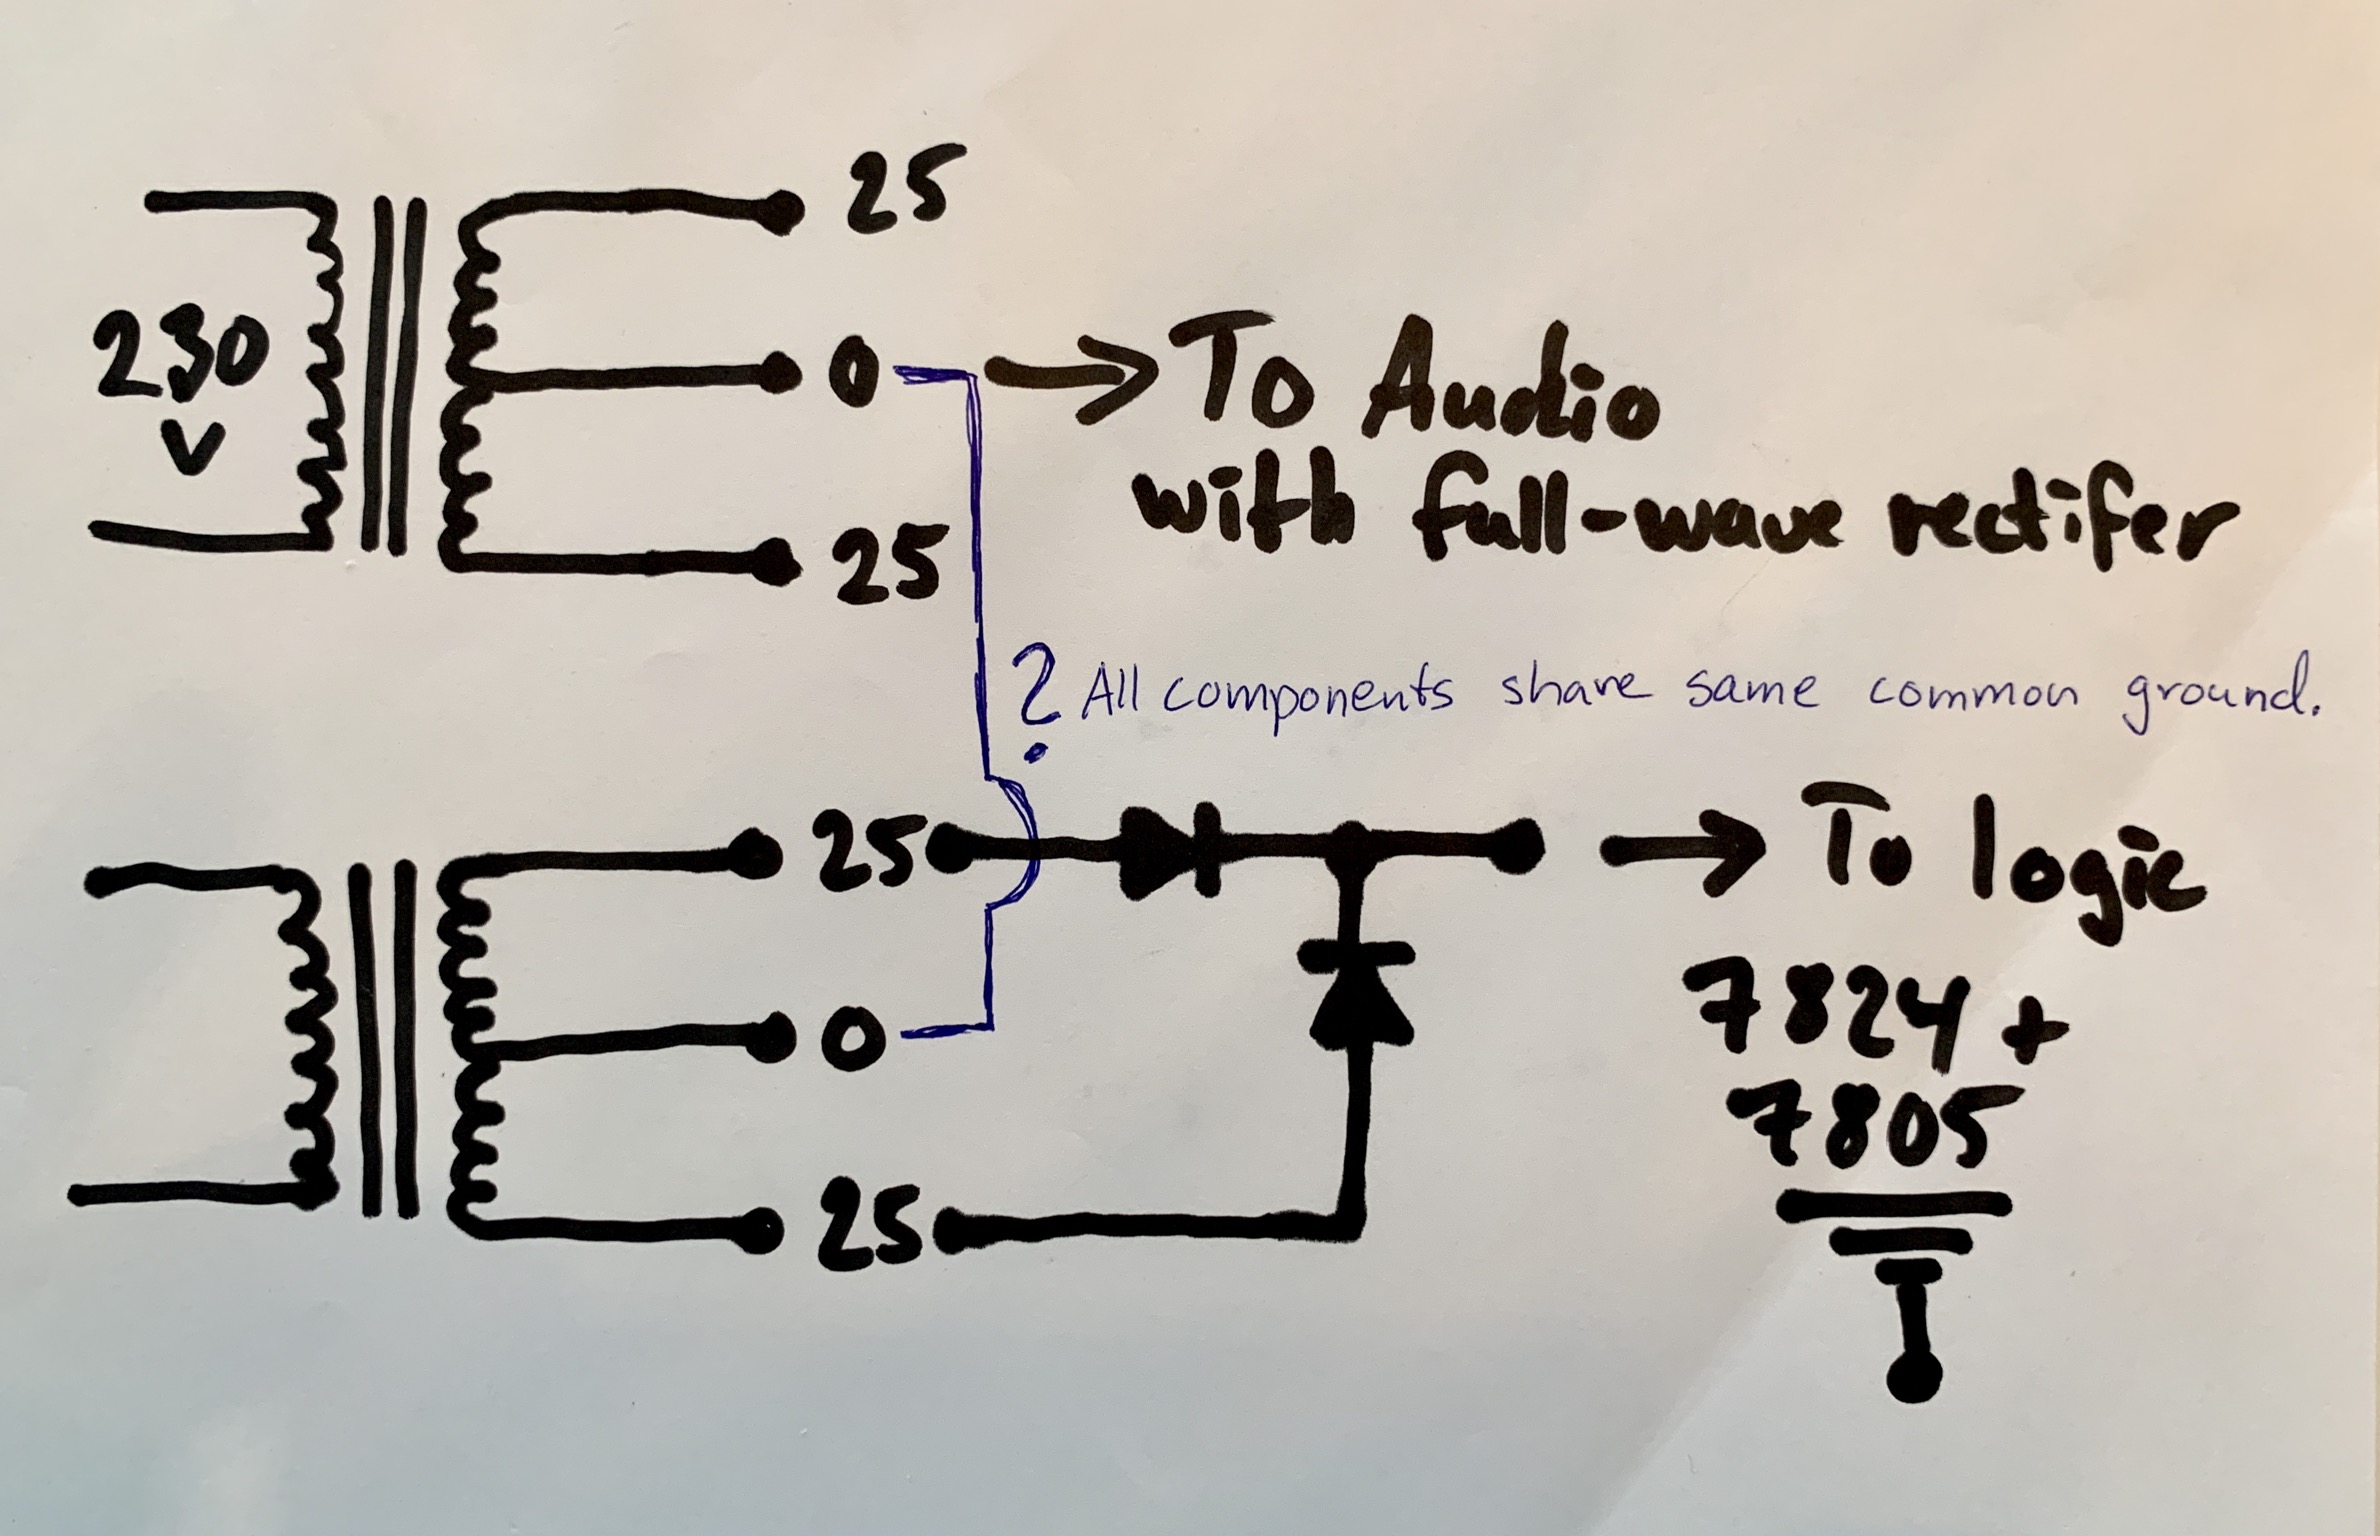 25
230
V
0
To Audio
with full-wave rectifer
25
? All components share same common ground.
25
To logic
7824 +
7805
0
25